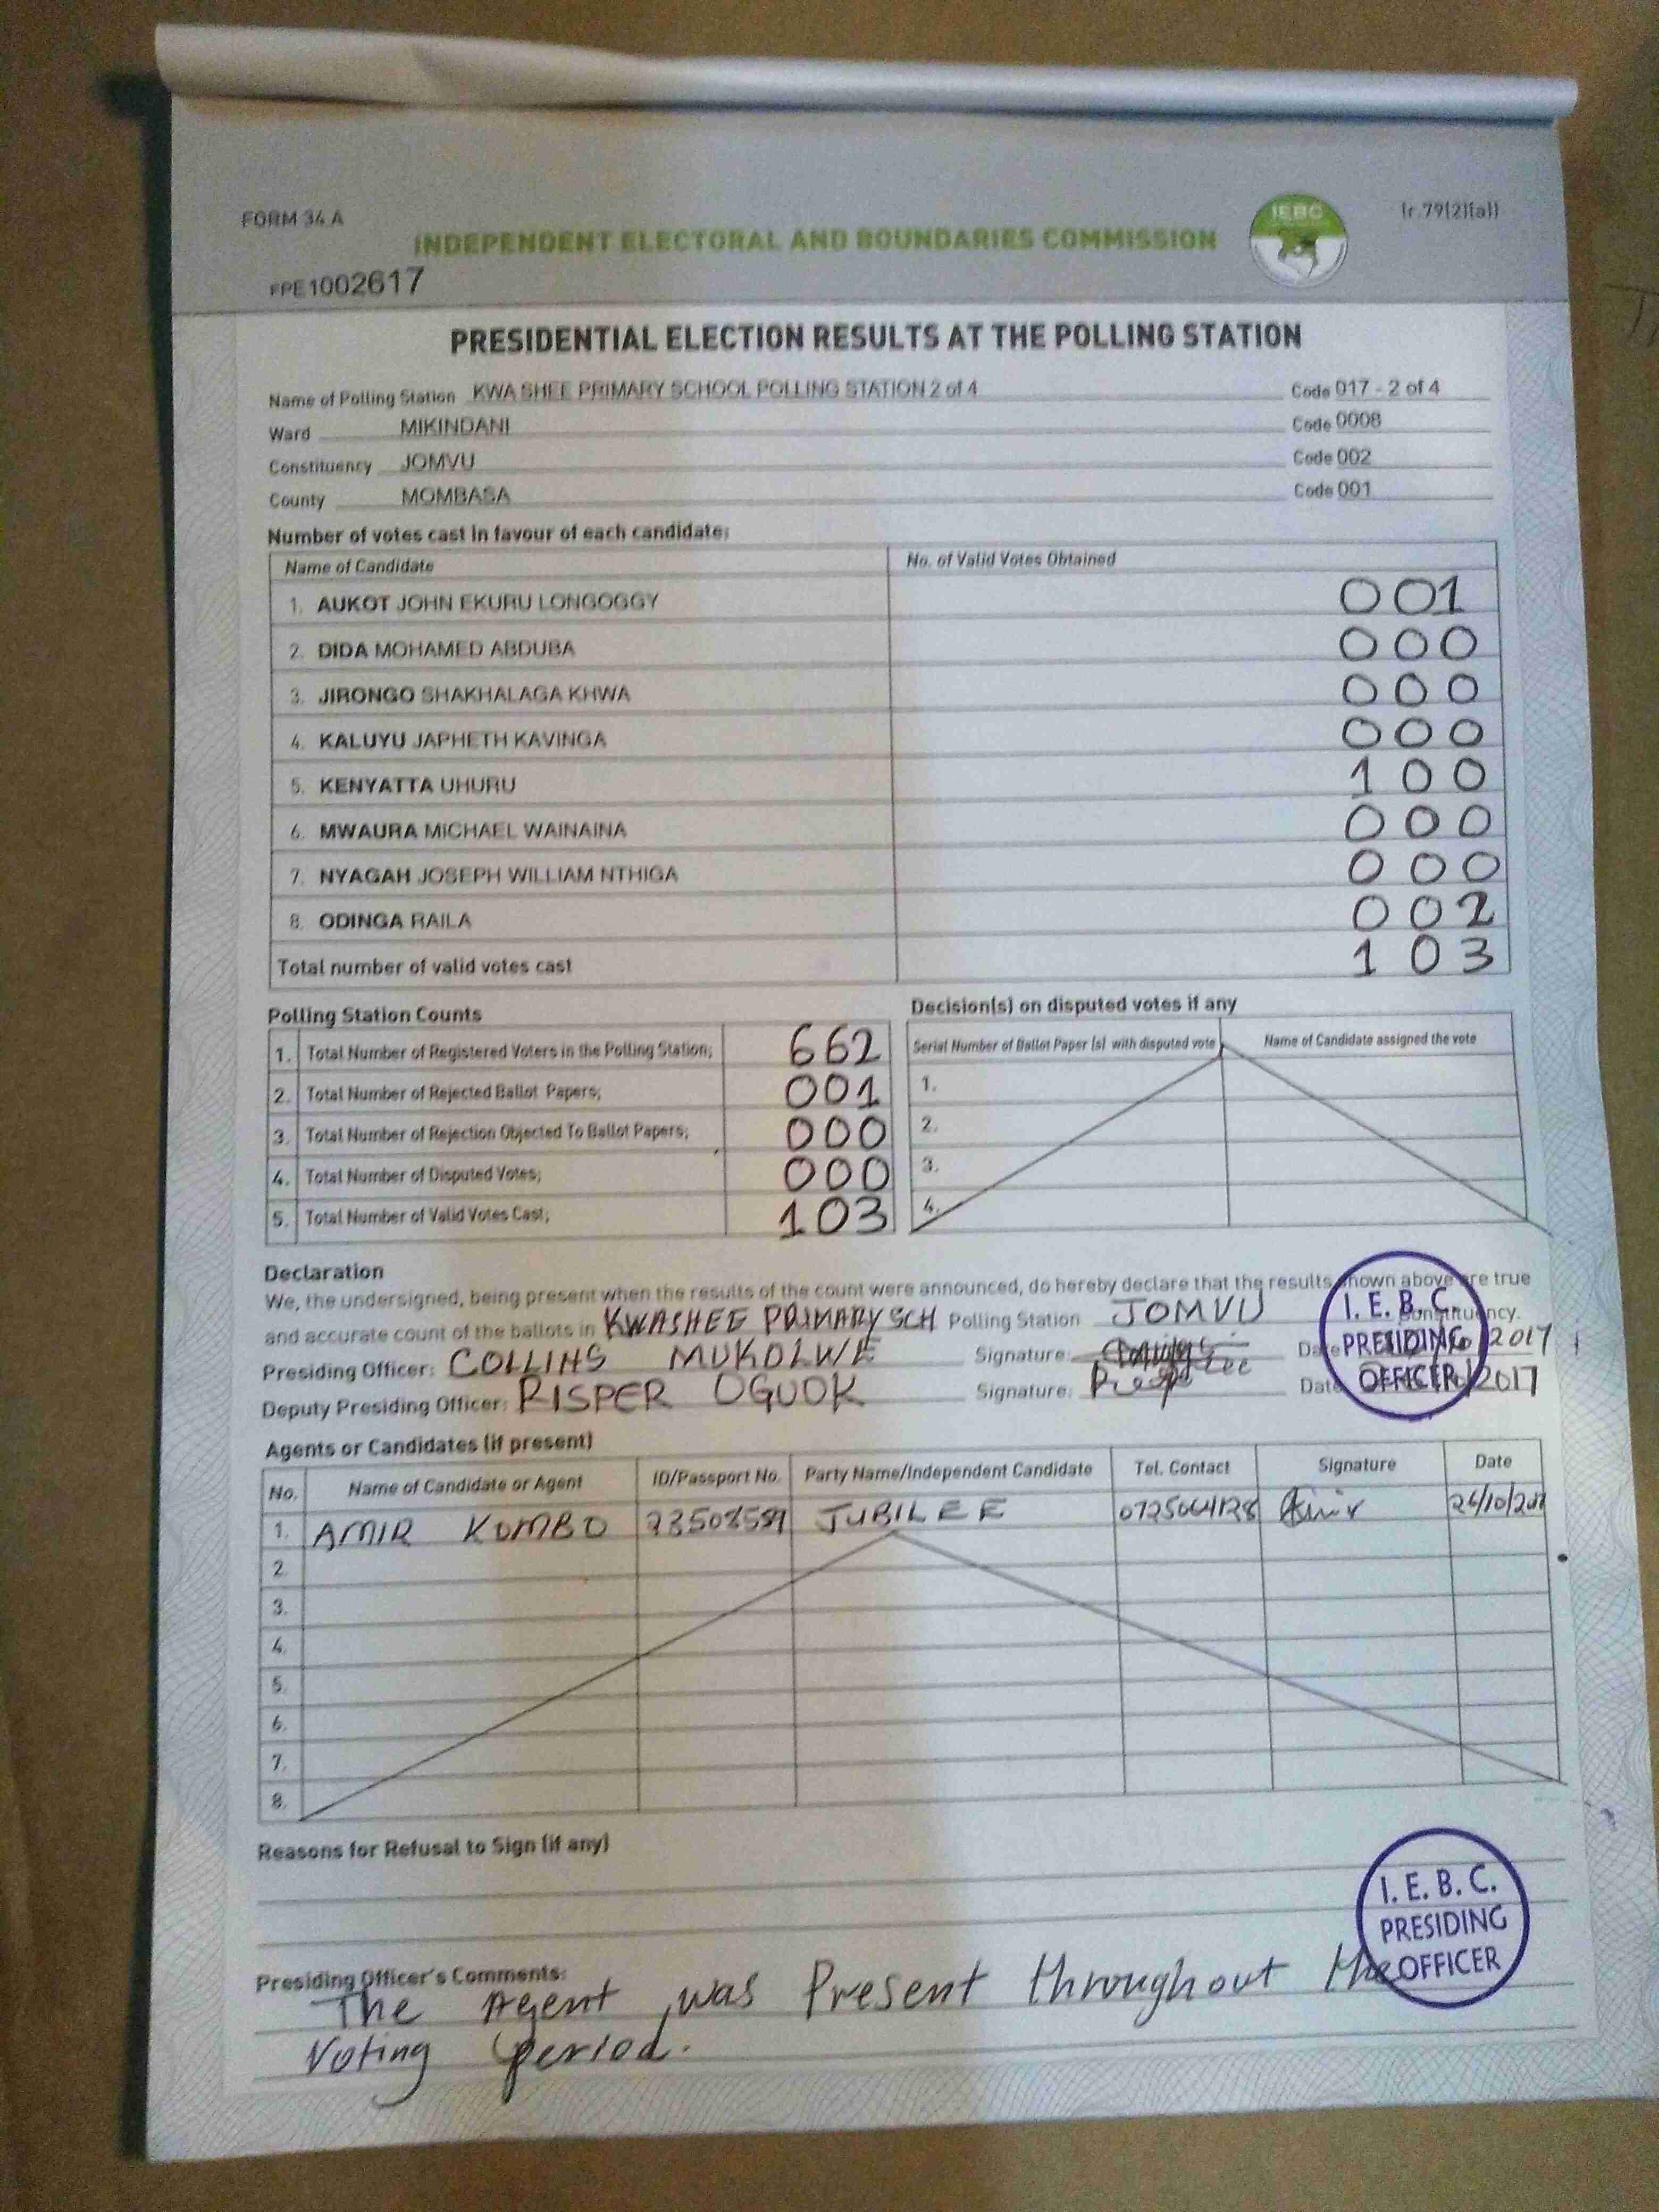 FORM 34 A
IEBC
(r.79(2)(a))
INDEPENDENT ELECTORAL AND BOUNDARIES COMMISSION
FPE1002617
PRESIDENTIAL ELECTION RESULTS AT THE POLLING STATION
Name of Polling Station KWA SHEE PRIMARY SCHOOL POLLING STATION 2 of 4 Code 017 - 2 of 4
Ward MIKINDANI Code 0008
Constituency JOMVU Code 002
County MOMBASA Code 001
Number of votes cast in favour of each candidate:
Name of Candidate No. of Valid Votes Obtained
1. AUKOT JOHN EKURU LONGOGGY 001
2. DIDA MOHAMED ABDUBA 000
3. JIRONGO SHAKHALAGA KHWA 000
4. KALUYU JAPHETH KAVINGA 000
5. KENYATTA UHURU 100
6. MWAURA MICHAEL WAINAINA 000
7. NYAGAH JOSEPH WILLIAM NTHIGA 000
8. ODINGA RAILA 002
Total number of valid votes cast 103
Polling Station Counts
1. Total Number of Registered Voters in the Polling Station; 662
2. Total Number of Rejected Ballot Papers; 001
3. Total Number of Rejection Objected To Ballot Papers; 000
4. Total Number of Disputed Votes; 000
5. Total Number of Valid Votes Cast; 103
Decision(s) on disputed votes if any
Serial Number of Ballot Paper (s) with disputed vote Name of Candidate assigned the vote
1.
2.
3.
4.
Declaration
We, the undersigned, being present when the results of the count were announced, do hereby declare that the results shown above are true
and accurate count of the ballots in KWASHEE PRIMARY SCH Polling Station JOMVU Constituency.
Presiding Officer: COLLINS MUKOLWE Signature: Date 2017
Deputy Presiding Officer: RISPER OGUOK Signature: Date 2017
I. E. B. C.
PRESIDING
OFFICER
Agents or Candidates (if present)
No. Name of Candidate or Agent ID/Passport No. Party Name/Independent Candidate Tel. Contact Signature Date
1. AMIR KOMBO JUBILEE 26/10/2017
2.
3.
4.
5.
6.
7.
8.
Reasons for Refusal to Sign (if any)
I. E. B. C.
PRESIDING
OFFICER
Presiding Officer's Comments:
The Agent was Present throughout the
Voting period.